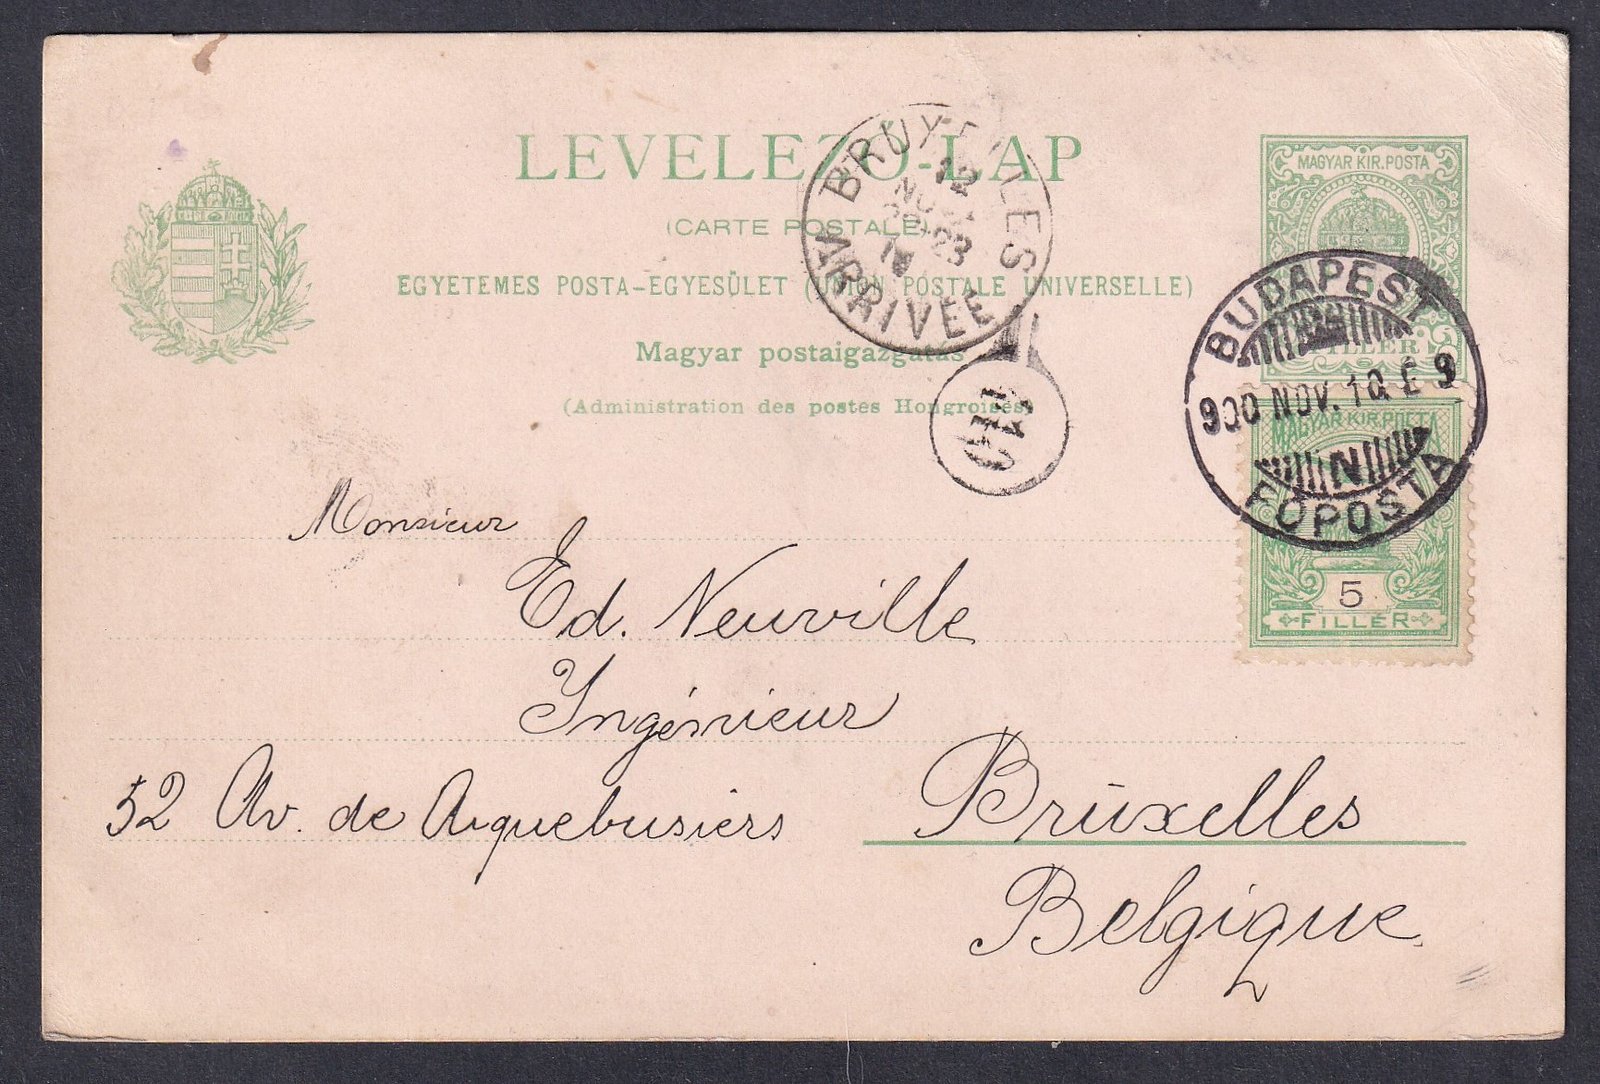 LEVELEZŐ-LAP
(CARTE POSTALE)
EGYETEMES POSTA-EGYESÜLET (UNION POSTALE UNIVERSELLE)
Magyar postaigazgatás
(Administration des postes Hongroises)
MAGYAR KIR. POSTA
FILLÉR
BRUXELLES
12
NOV
23
ARRIVÉE
BUDAPEST
900 NOV. 10. E 9
N
FŐPOSTA
MAGYAR KIR. POSTA
5
FILLÉR
Monsieur
Ed. Neuville
Ingénieur
52 Av. de Arquebusiers
Bruxelles
Belgique